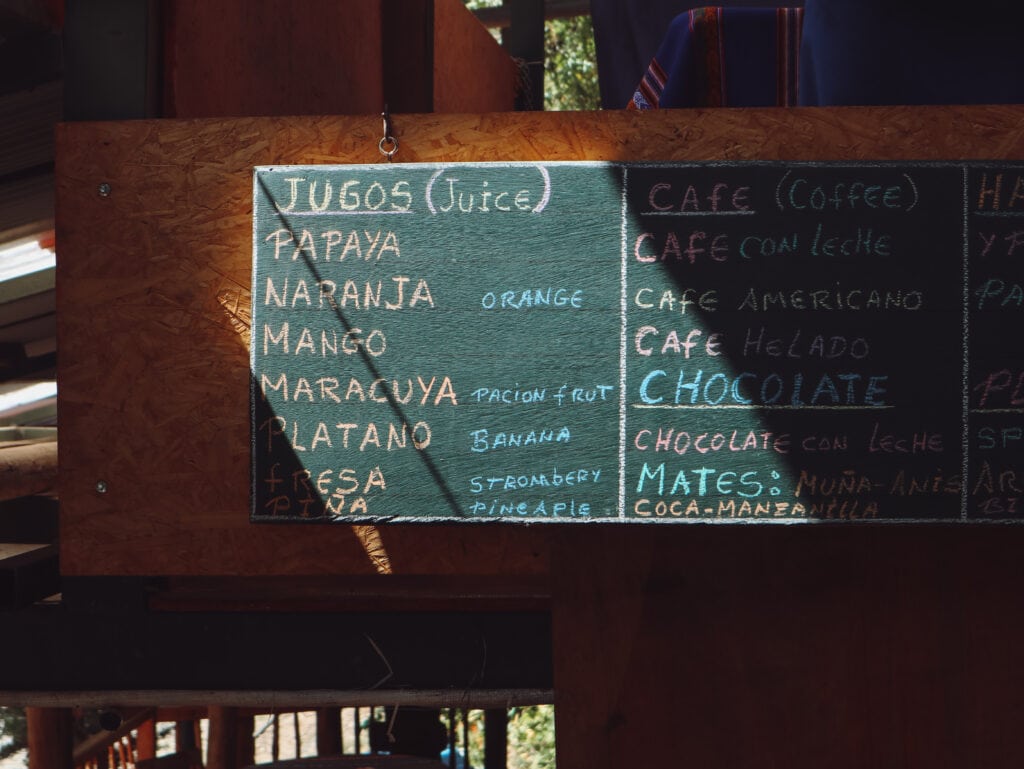 JUGOS (Juice)
PAPAYA
NARANJA ORANGE
MANGO
MARACUYA PACION fRUT
PLATANO BANANA
fRESA STROMBERY
PIÑA PINEAPLE
CAFE (Coffee)
CAFE CON leche
CAFE AMERICANO
CAFE HELADO
CHOCOLATE
CHOCOLATE CON LECHE
MATES: MUÑA-ANIS
COCA-MANZANILLA